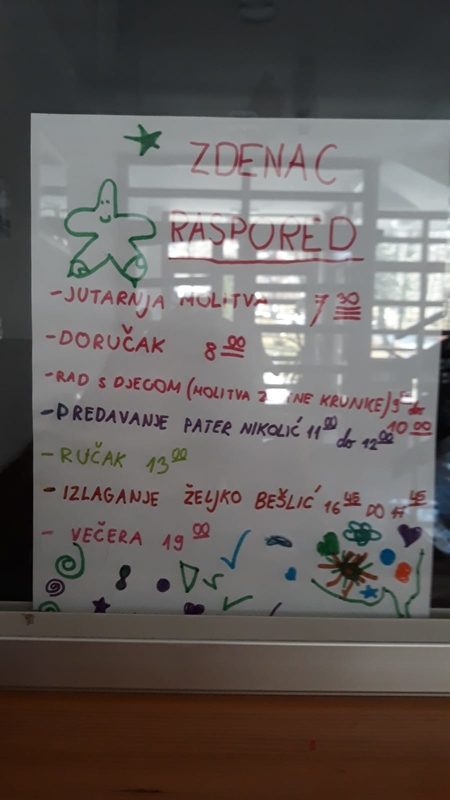 ZDENAC
RASPORED
- JUTARNJA MOLITVA 7 30
- DORUČAK 8 00
- RAD S DJECOM (MOLITVA KRUNICE) 9 do 10 00
- PREDAVANJE PATER NIKOLIĆ 11 00 do 12 00
- RUČAK 13 00
- IZLAGANJE ŽELJKO BEŠLIĆ 16 45 DO 45
- VEČERA 19 00